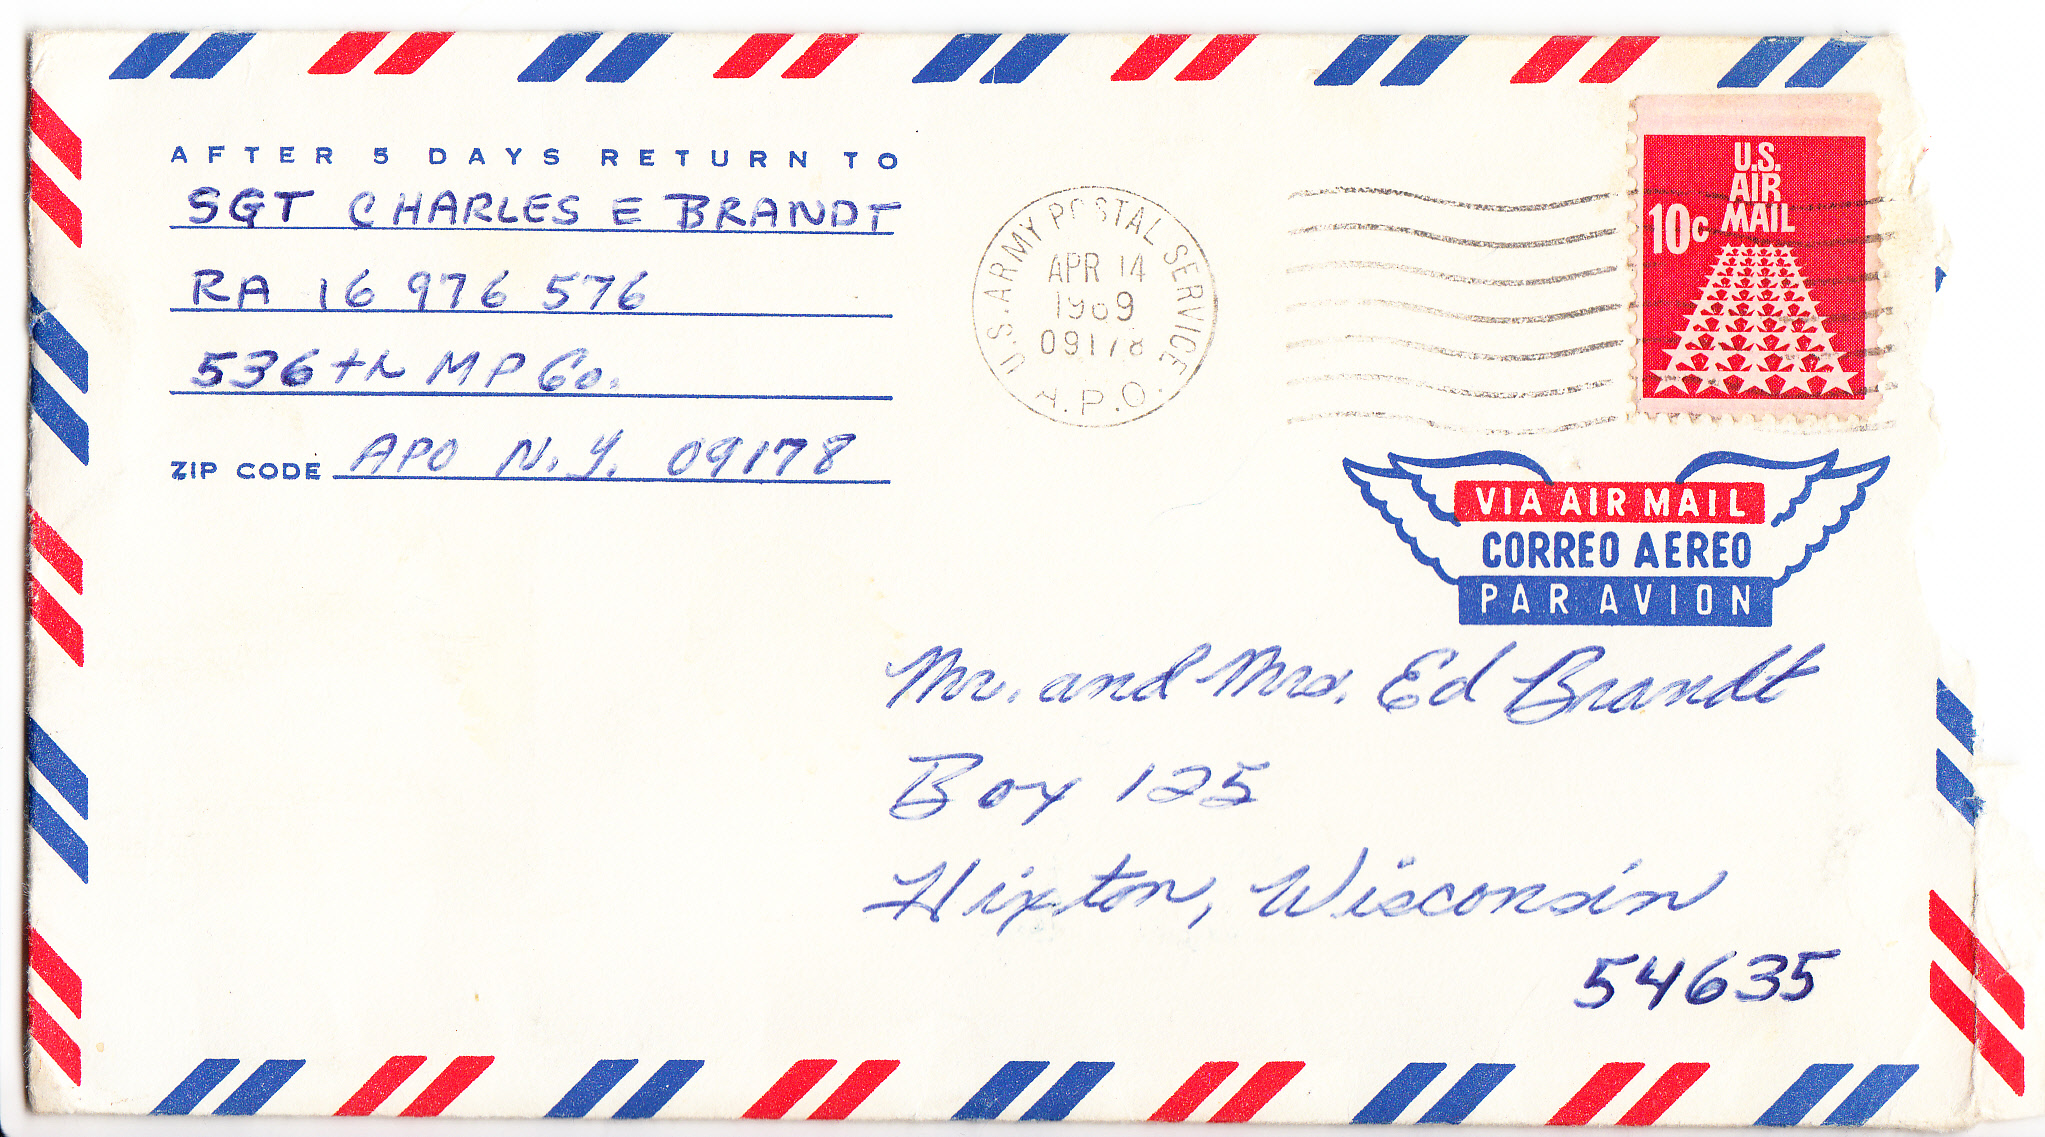 AFTER 5 DAYS RETURN TO
SGT CHARLES E BRANDT
RA 16 976 576
536th MP Co.
ZIP CODE APO N.Y. 09178
U.S. ARMY POSTAL SERVICE
APR 14
1969
09178
A.P.O.
U.S.
AIR
MAIL
10c
VIA AIR MAIL
CORREO AEREO
PAR AVION
Mr. and Mrs. Ed Brandt
Box 125
Hixton, Wisconsin
54635